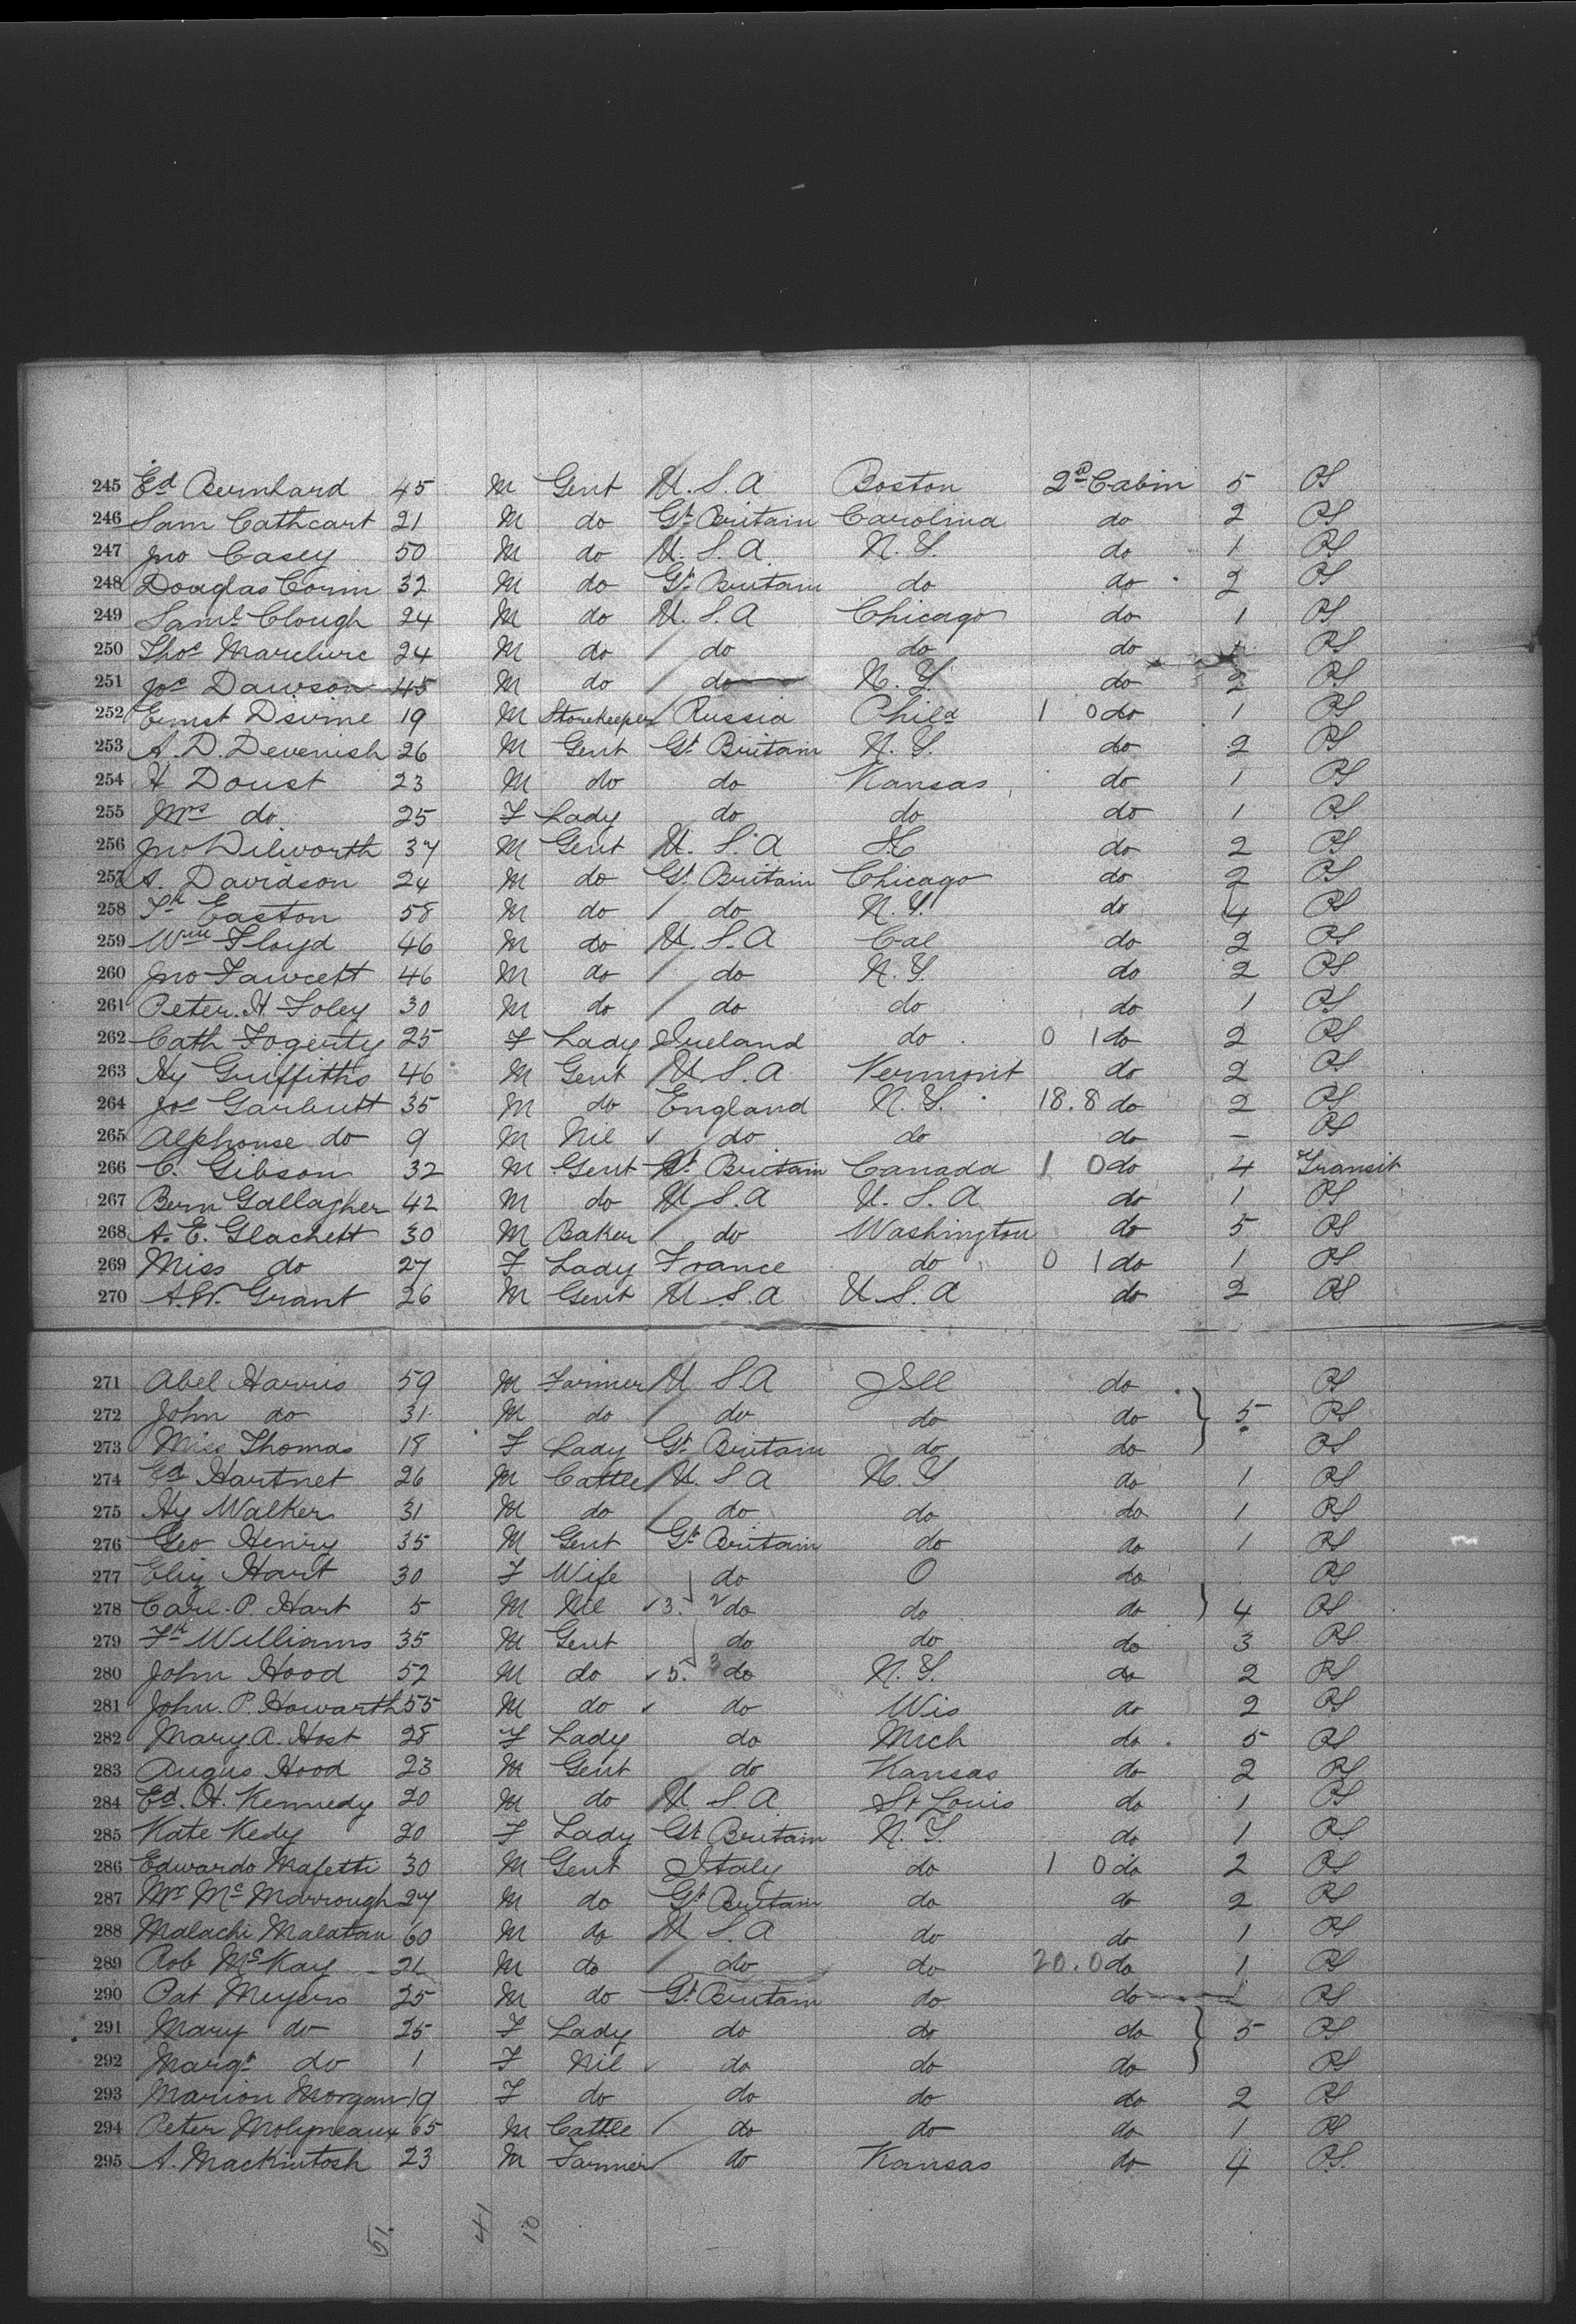 245 Ed Bernhard 45 M Gent U.S.A Boston 2nd Cabin 5 PS
246 Sam Cathcart 21 M do Gt Britain Carolina do 2 PS
247 Jno Casey 50 M do U.S.A N.Y. do 1 PS
248 Douglas Corin 32 M do Gt Britain do do 2 PS
249 Saml Clough 24 M do U.S.A Chicago do 1 PS
250 Thos Marclure 24 M do do do do 1 PS
251 Jos Dawson 45 M do do N.Y. do 2 PS
252 Ernst 19 M Storekeeper Russia Phila 1 0 do 1 PS
253 A.D. Devenish 26 M Gent Gt Britain N.Y. do 2 PS
254 H Doust 23 M do do Kansas do 1 PS
255 Mrs do 25 F Lady do do do 1 PS
256 Jno Dilworth 37 M Gent U.S.A do 2 PS
257 A. Davidson 24 M do Gt Britain Chicago do 2 PS
258 Easton 58 M do do N.Y. do 4 PS
259 Wm Floyd 46 M do U.S.A Cal do 2 PS
260 Jno Fawcett 46 M do do N.Y. do 2 PS
261 Peter H Foley 30 M do do do do 1 PS
262 Cath Fogerty 25 F Lady Ireland do 0 1 do 2 PS
263 Hy Griffiths 46 M Gent U.S.A Vermont do 2 PS
264 Jos Garbutt 35 M do England N.Y. 18.8 do 2 PS
265 Alphonse do 9 M Nil do do do – PS
266 C. Gibson 32 M Gent Gt Britain Canada 1 0 do 4 Transit
267 Bern Gallagher 42 M do U.S.A U.S.A do 1 PS
268 A.E. Glachett 30 M Baker do Washington do 5 PS
269 Miss do 27 F Lady France do 0 1 do 1 PS
270 A.W. Grant 26 M Gent U.S.A U.S.A do 2 PS
271 Abel Harris 59 M Farmer U.S.A Ill do PS
272 John do 31 M do do do do 5 PS
273 Miss Thomas 18 F Lady Gt Britain do do PS
274 Ed Hartnet 26 M Cattle U.S.A N.Y do 1 PS
275 Hy Walker 31 M do do do do 1 PS
276 Geo Henry 35 M Gent Gt Britain do do 1 PS
277 Eliz Hart 30 F Wife do O do PS
278 Carl P. Hart 5 M Nil 3. 2 do do do 4 PS
279 Fk Williams 35 M Gent do do do 3 PS
280 John Hood 52 M do 5. 3 do N.Y. do 2 PS
281 John P. Howarth 55 M do do Wis do 2 PS
282 Mary A. Host 28 F Lady do Mich do 5 PS
283 Angus Hood 23 M Gent do Kansas do 2 PS
284 Ed. H. Kennedy 20 M do U.S.A St Louis do 1 PS
285 Kate Kedy 20 F Lady Gt Britain N.Y. do 1 PS
286 Edwardo Mafetti 30 M Gent Italy do 1 0 do 2 PS
287 Mc Marrough 27 M do Gt Britain do do 2 PS
288 Malachi Malatan 60 M do U.S.A do do 1 PS
289 Rob McKay 21 M do do do 20.0 do 1 PS
290 Pat Meyers 25 M do Gt Britain do do 1 PS
291 Mary do 25 F Lady do do do 5 PS
292 Margt do 1 F Nil do do do PS
293 Marion Morgan 19 F do do do do 2 PS
294 Peter Molyneaux 65 M Cattle do do do 1 PS
295 A. Mackintosh 23 M Farmer do Kansas do 4 P.S.
51. 41 10